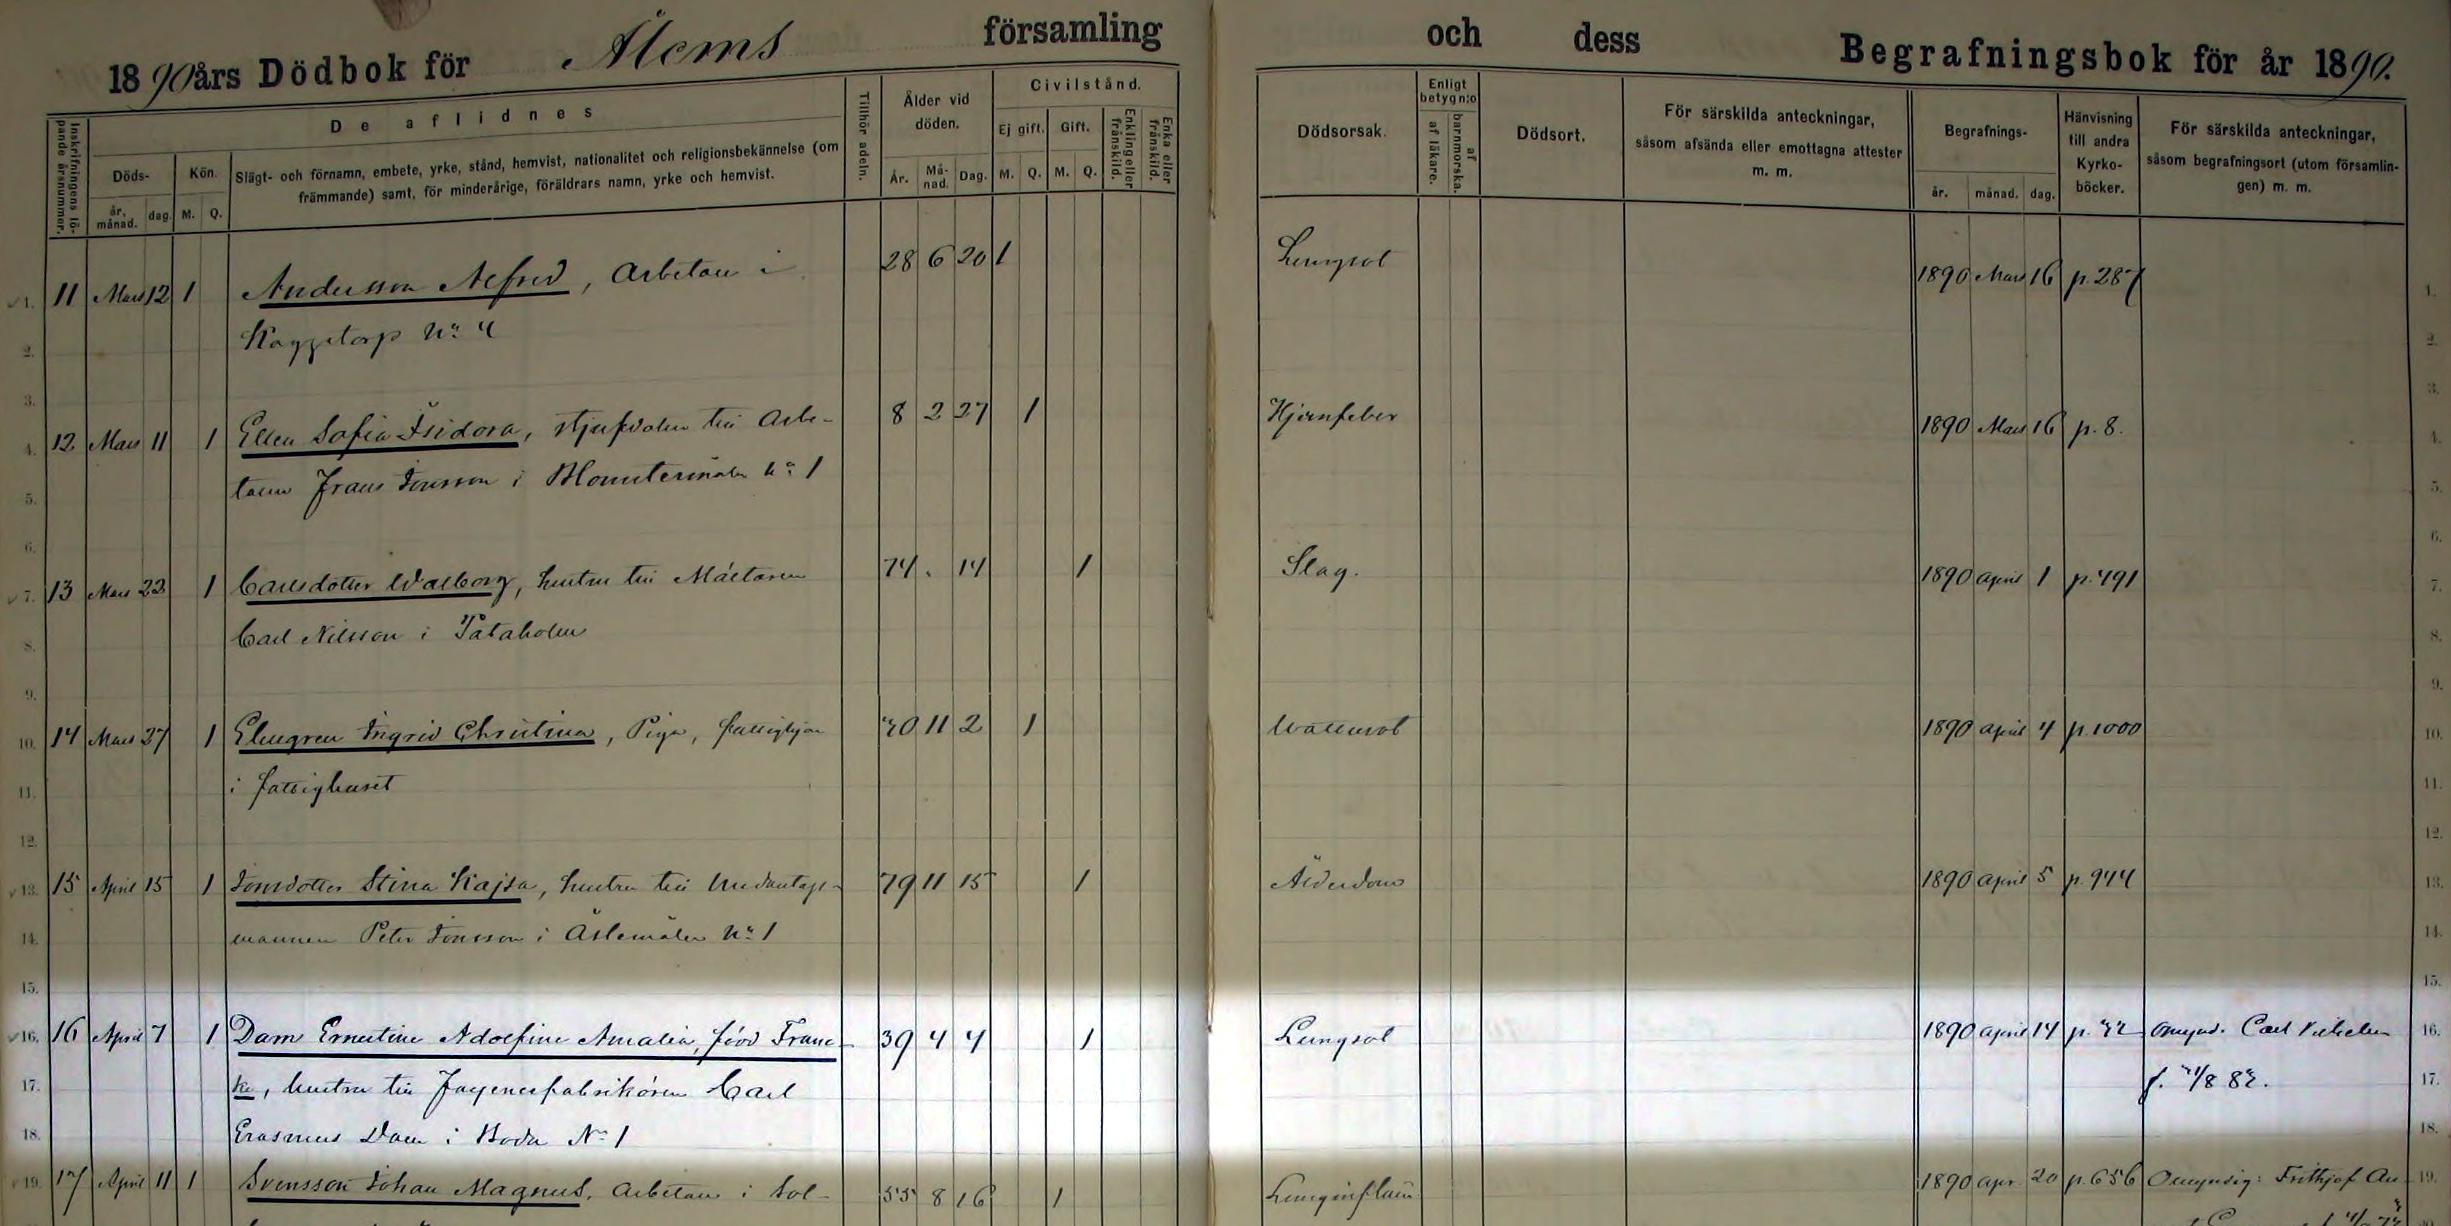 1890 års Dödbok för Ålems församling
och dess Begrafningsbok för år 1890.
Inskrifningens löpande årsnummer.
De aflidnes
Döds-
år, månad.
dag.
Kön.
M. Q.
Slägt- och förnamn, embete, yrke, stånd, hemvist, nationalitet och religionsbekännelse (om
främmande) samt, för minderårige, föräldrars namn, yrke och hemvist.
Tillhör adeln.
Ålder vid
döden.
År. Må-nad. Dag.
Civilstånd.
Ej gift. Gift.
M. Q. M. Q.
Enkling eller frånskild.
Enka eller frånskild.
Dödsorsak.
Enligt
betyg n:o
af läkare.
af barnmorska.
Dödsort.
För särskilda anteckningar,
såsom afsända eller emottagna attester
m. m.
Begrafnings-
år. månad. dag.
Hänvisning
till andra
Kyrko-
böcker.
För särskilda anteckningar,
såsom begrafningsort (utom församlin-
gen) m. m.
1. 11 Mars 12 1 Andersson Alfred, Arbetare i 28 6 20 1 Lungsot 1890 Mars 16 p. 287 1.
2. Kaggetorp No 4 2.
3. 3.
4. 12 Mars 11 1 Ellen Sofia Isidora, styfdotter till Arbe- 8 2 27 1 Hjernfeber 1890 Mars 16 p. 8. 4.
5. taren Frans Jonsson i Blomstermåla No 1 5.
6. 6.
7. 13 Mars 22 1 Carlsdotter Walborg, hustru till Mältaren 74 . 14 1 Slag. 1890 April 1 p. 491 7.
8. Carl Nilsson i Pataholm 8.
9. 9.
10. 14 Mars 27 1 Elmgren Ingrid Christina, Piga, fattighjon 70 11 2 1 Wattusot 1890 April 4 p. 1000 10.
11. i fattighuset 11.
12. 12.
13. 15 April 15 1 Jonsdotter Stina Kajsa, hustru till Undantags- 79 11 15 1 Ålderdom 1890 April 5 p. 944 13.
14. mannen Peter Jonsson i Åslemåla No 1 14.
15. 15.
16. 16 April 7 1 Dam Ernestine Adolfine Amalia, född Franc- 39 4 4 1 Lungsot 1890 April 14 p. 42 omynd. Carl Vilhelm 16.
17. ke, hustru till Fayencefabrikören Carl f. 21/8 82. 17.
18. Erasmus Dam i Boda No 1 18.
19. 17 April 11 1 Svensson Johan Magnus, Arbetare i Sol- 55 8 16 1 Lunginflam 1890 Apr. 20 p. 656 Omyndig: Frithjof An- 19.